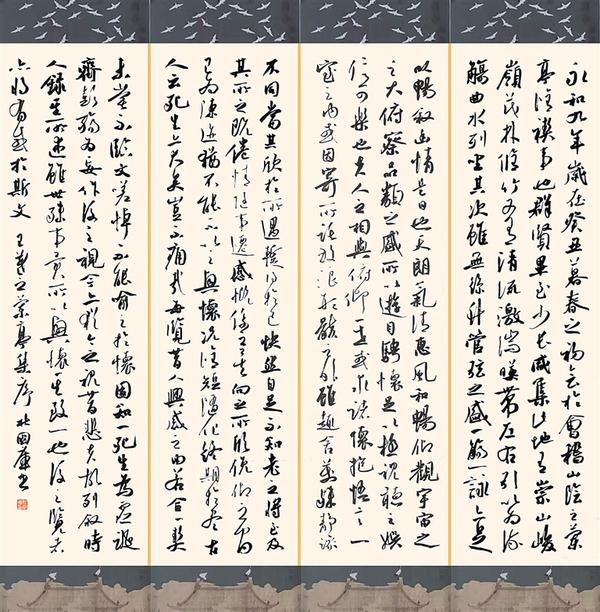 永和九年歲在癸丑暮春之初會於會稽山陰之蘭
亭修禊事也群賢畢至少長咸集此地有崇山峻
嶺茂林修竹又有清流激湍映帶左右引以為流
觴曲水列坐其次雖無絲竹管弦之盛觴一詠亦足
以暢敘幽情是日也天朗氣清惠風和暢仰觀宇宙之
之大俯察品類之盛所以遊目騁懷足以極視聽之娛
信可樂也夫人之相與俯仰一世或取諸懷抱悟言一
室之內或因寄所託放浪形骸之外雖趣舍萬殊靜躁
不同當其欣於所遇暫得於己快然自足不知老之將至及
其所之既倦情隨事遷感慨係之矣向之所欣俯仰之間
已為陳迹猶不能不以之興懷況修短隨化終期於盡古
人云死生亦大矣豈不痛哉每覽昔人興感之由若合一契
未嘗不臨文嗟悼不能喻之於懷固知一死生為虛誕
齊彭殤為妄作後之視今亦猶今之視昔悲夫故列敘時
人錄其所述雖世殊事異所以興懷其致一也後之覽者
亦將有感於斯文 王羲之蘭亭集序 書